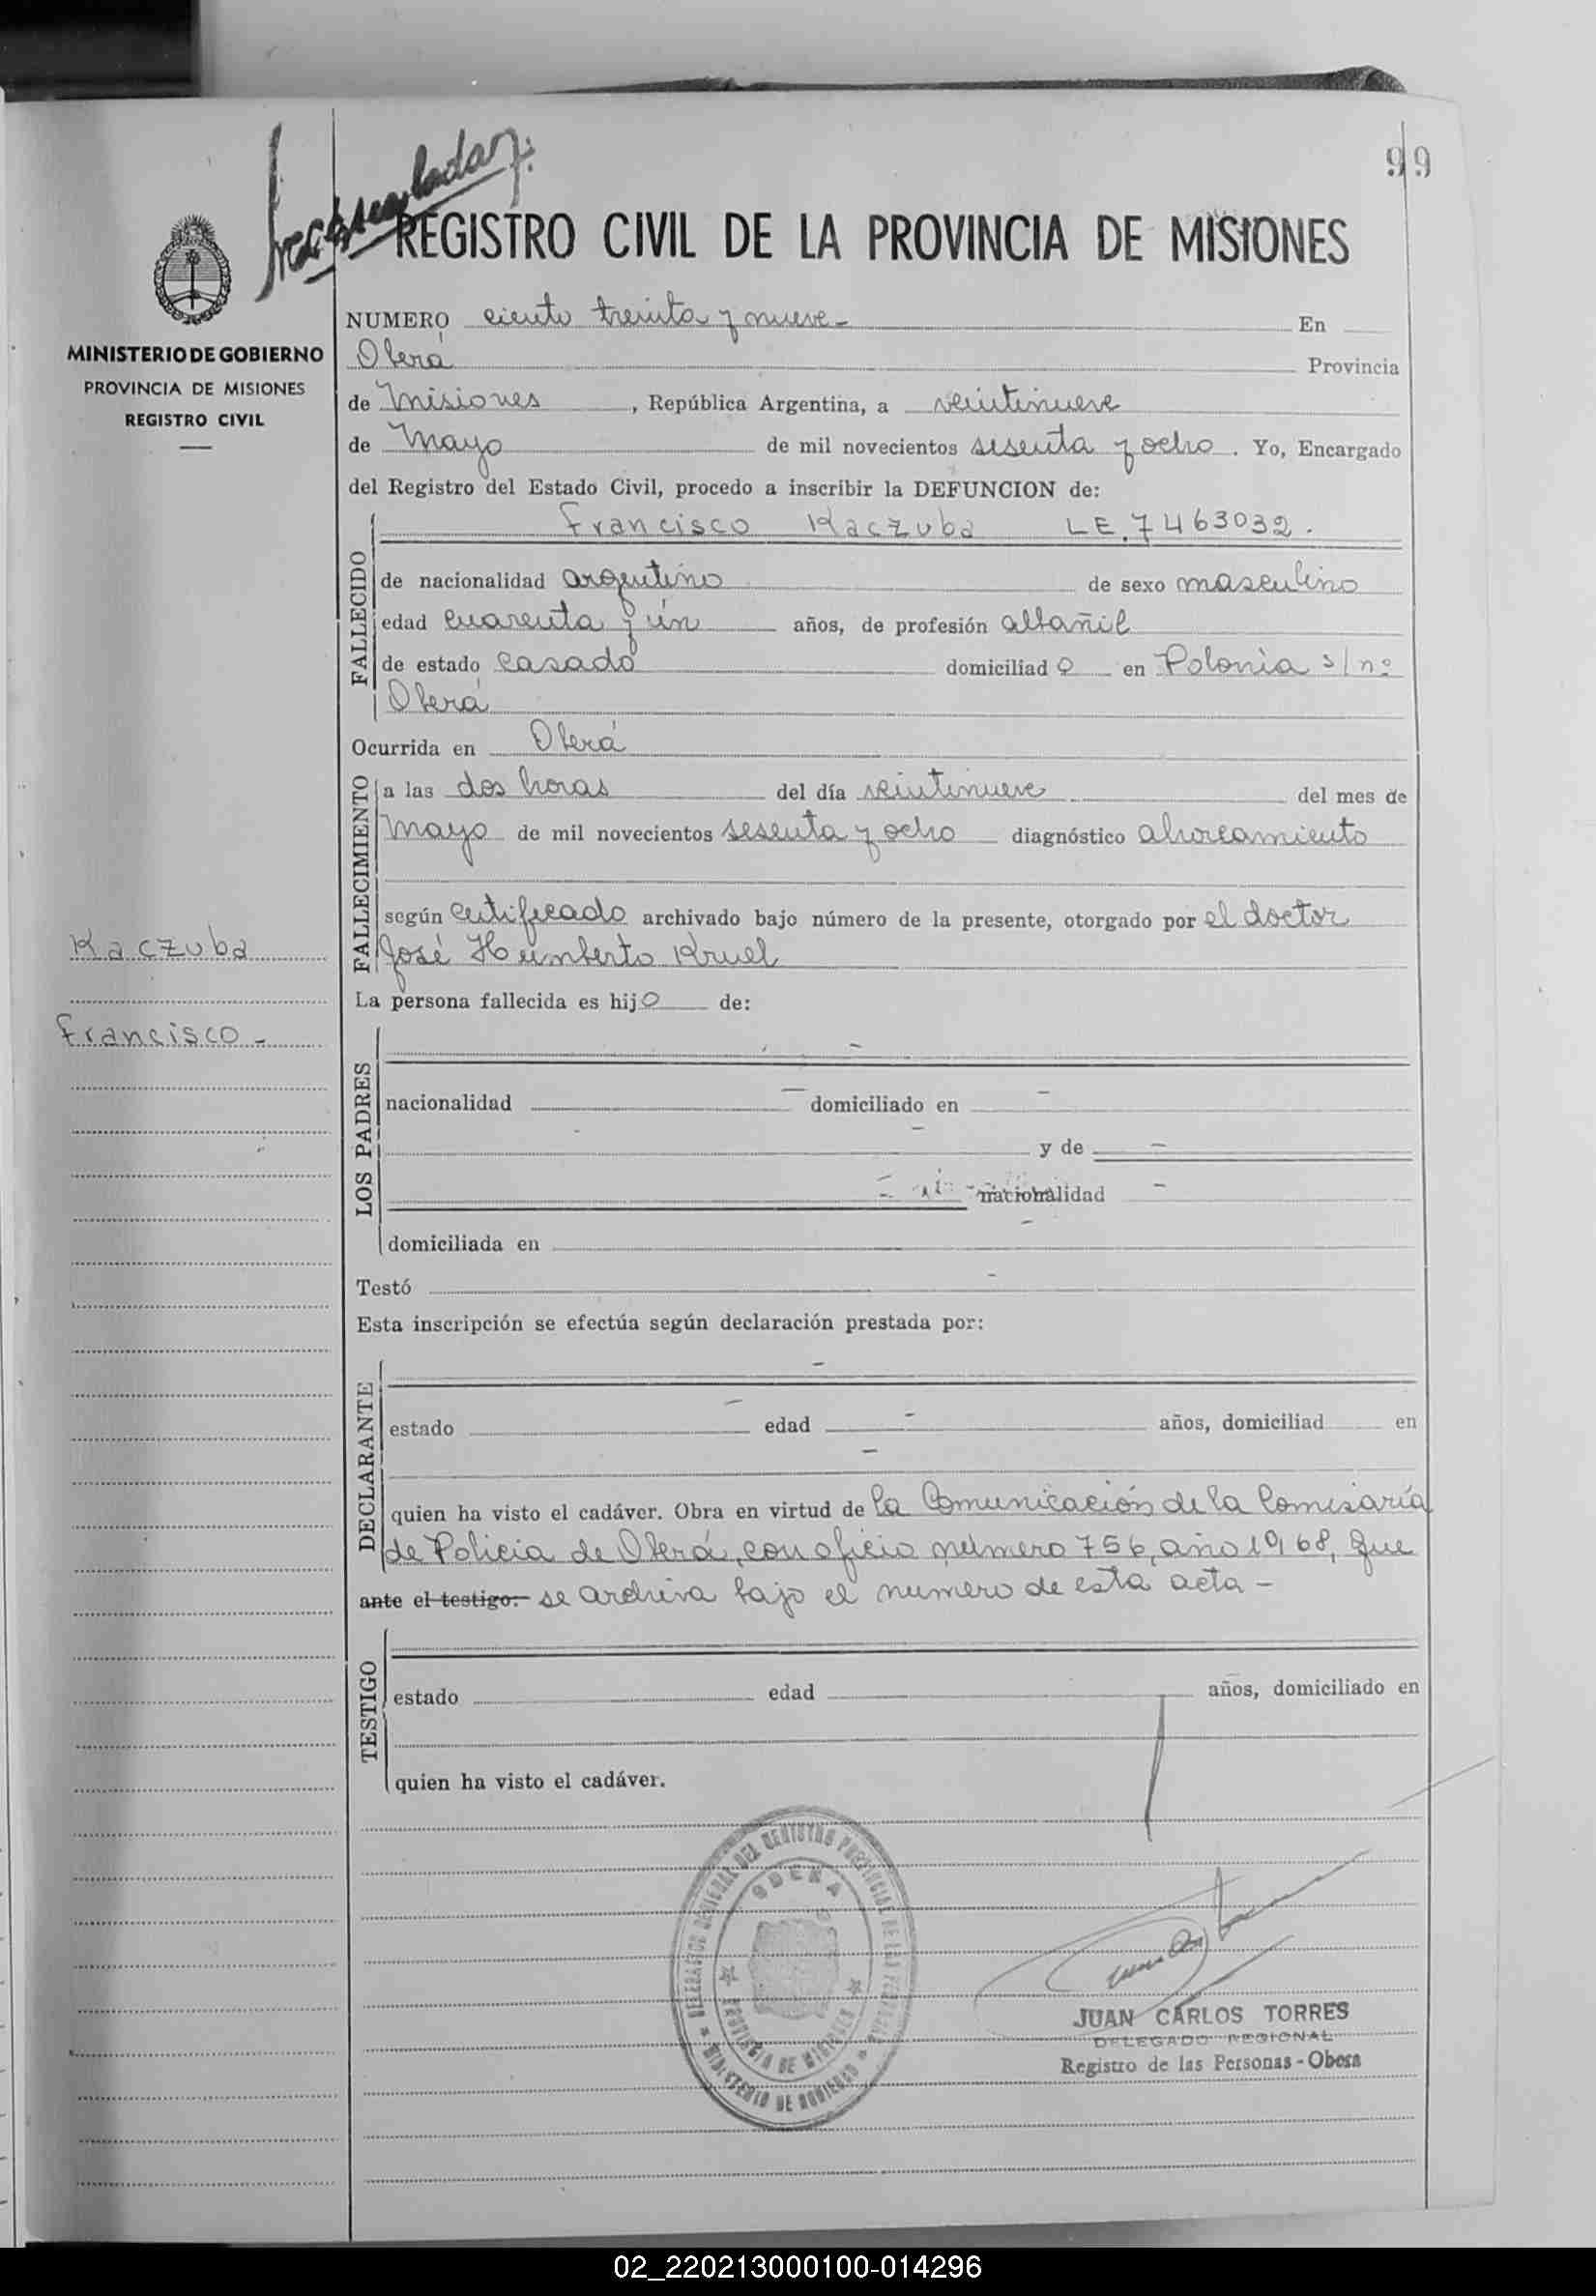 99
REGISTRO CIVIL DE LA PROVINCIA DE MISIONES
MINISTERIO DE GOBIERNO
PROVINCIA DE MISIONES
REGISTRO CIVIL
NUMERO ciento treinta y nueve - En
Oberá Provincia
de Misiones, República Argentina, a veintinueve
de Mayo de mil novecientos sesenta y ocho. Yo, Encargado
del Registro del Estado Civil, procedo a inscribir la DEFUNCION de:
Francisco Kaczuba LE. 7463032.
FALLECIDO
de nacionalidad argentino de sexo masculino
edad cuarenta y un años, de profesión albañil
de estado casado domiciliado en Polonia s/nº
Oberá
Ocurrida en Oberá
FALLECIMIENTO
a las dos horas del día veintinueve del mes de
Mayo de mil novecientos sesenta y ocho diagnóstico ahorcamiento
según certificado archivado bajo número de la presente, otorgado por el doctor
José Humberto Kruel
Kaczuba
Francisco -
La persona fallecida es hijo de:
LOS PADRES
nacionalidad - domiciliado en -
- y de -
- nacionalidad -
domiciliada en -
Testó -
Esta inscripción se efectúa según declaración prestada por:
DECLARANTE
-
estado - edad - años, domiciliad en
-
quien ha visto el cadáver. Obra en virtud de la Comunicación de la Comisaría
de Policia de Oberá, con oficio número 756, año 1968, que
ante el testigo: se archiva bajo el numero de esta acta -
TESTIGO
estado edad años, domiciliado en
quien ha visto el cadáver.
OBERA
PROVINCIA DE MISIONES
MINISTERIO DE GOBIERNO
JUAN CARLOS TORRES
DELEGADO REGIONAL
Registro de las Personas - Obera
02_220213000100-014296